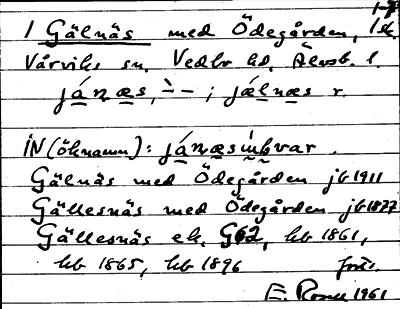 1-7
1 Gälnäs med Ödegården, 1 sk.
Vårviks sn. Vedbo hd. Älvsb. l.
jánæs, `- - ; jǽlnæs r.
IN (öknamn): jánæsiŋkvar.
Gälnäs med Ödegården jb 1911
Gällesnäs med Ödegården jb 1877
Gällesnäs el. G62, kb 1861,
kb 1865, kb 1896 forts.
E. 1961